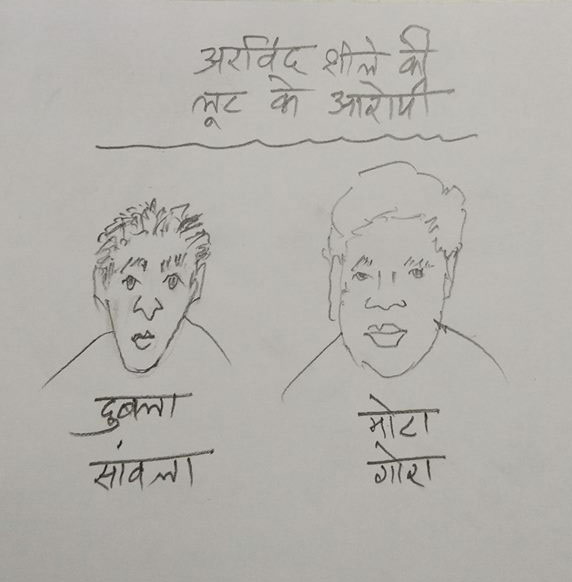 अरविंद शीले की
लूट के आरोपी
दुबला
सांवला
मोटा
गोरा